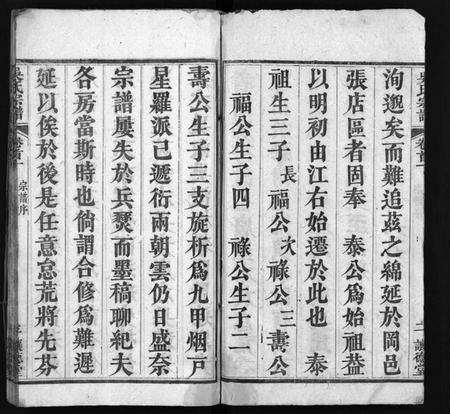 洵邈矣而難追茲之綿延於岡邑
張店區者固奉　泰公為始祖葢
以明初由江右始遷於此也　泰
祖生三子長福公次祿公三壽公
福公生子四　祿公生子二
壽公生子三支旋析為九甲烟戸
星羅派已遞衍兩朝雲仍日盛奈
宗譜屢失於兵燹而墨稿聊紀夫
各房當斯時也倘謂合修為難遲
延以俟於後是任意怠荒將先芬
吳氏宗譜
卷首
宗譜序